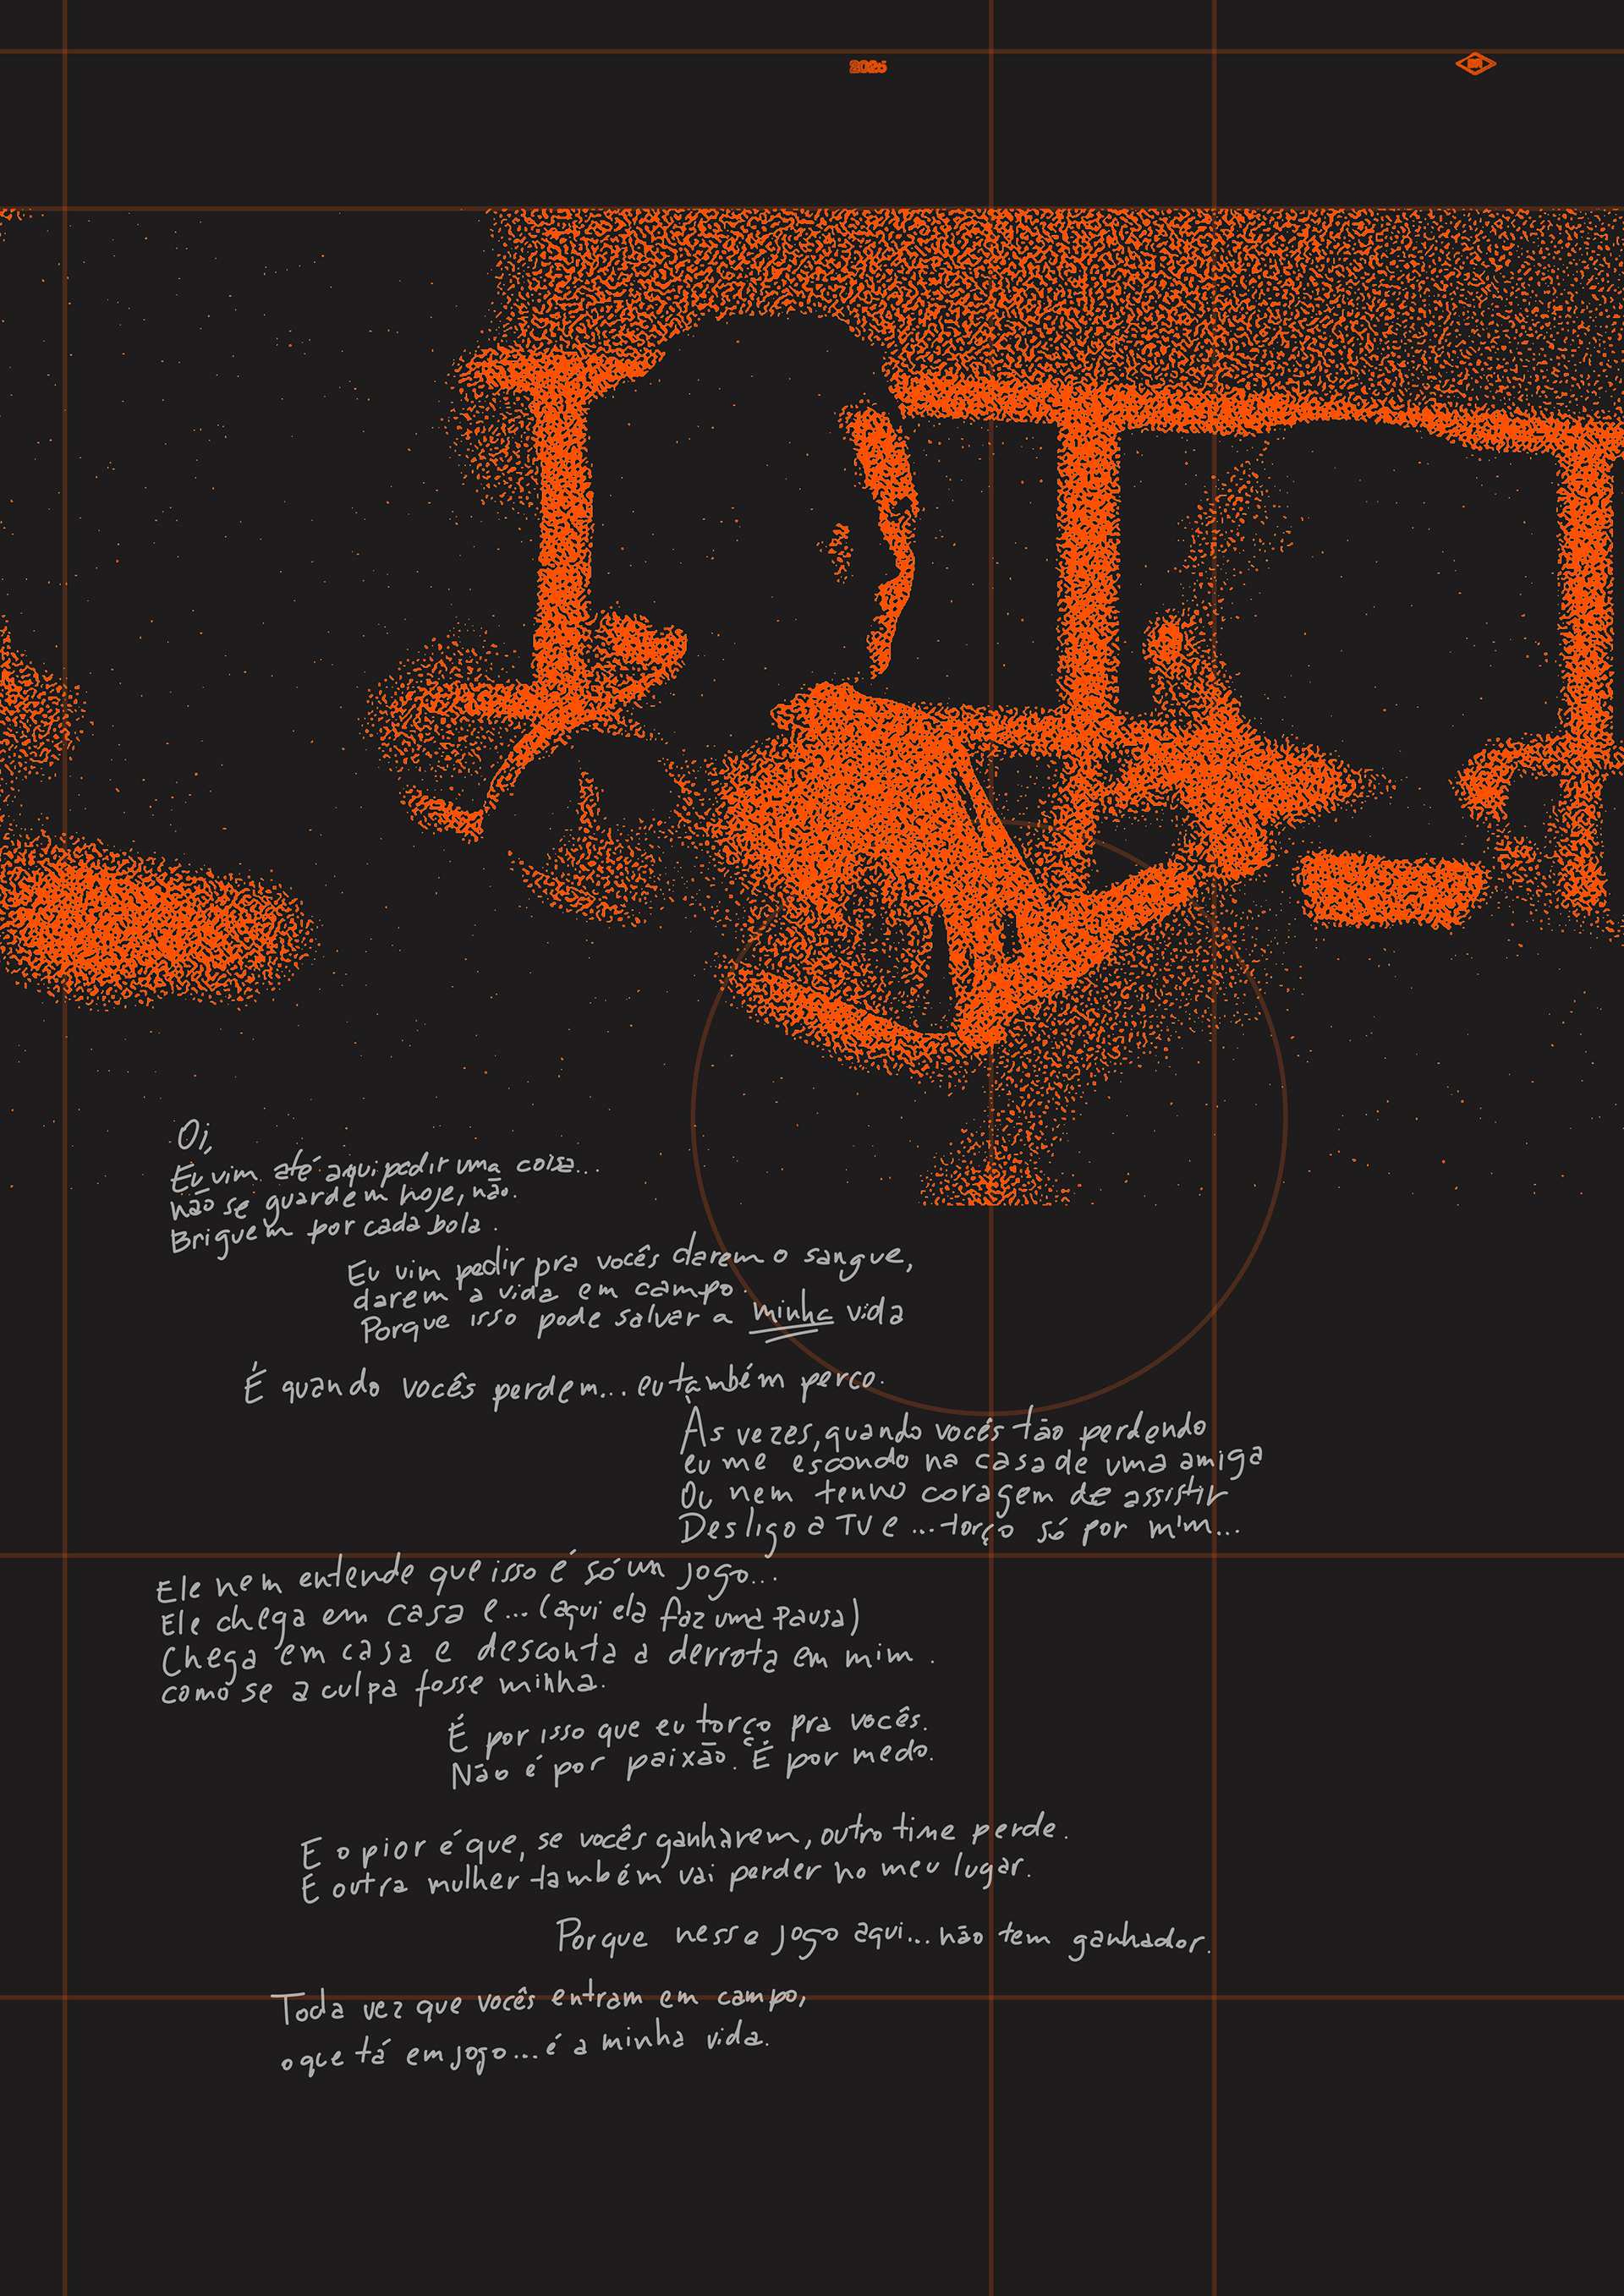 2026
Oi,
Eu vim até aqui pedir uma coisa...
não se guardem hoje, não.
Briguem por cada bola.
Eu vim pedir pra vocês darem o sangue,
darem a vida em campo.
Porque isso pode salvar a minha vida
É quando vocês perdem... eu também perco.
Às vezes, quando vocês tão perdendo
eu me escondo na casa de uma amiga
Ou nem tenho coragem de assistir
Desligo a TV e ...torço só por mim...
Ele nem entende que isso é só um jogo...
Ele chega em casa e... (aqui ela faz uma pausa)
Chega em casa e desconta a derrota em mim.
como se a culpa fosse minha.
É por isso que eu torço pra vocês.
Não é por paixão. É por medo.
E o pior é que, se vocês ganharem, outro time perde.
E outra mulher também vai perder no meu lugar.
Porque nesse jogo aqui... não tem ganhador.
Toda vez que vocês entram em campo,
o que tá em jogo... é a minha vida.